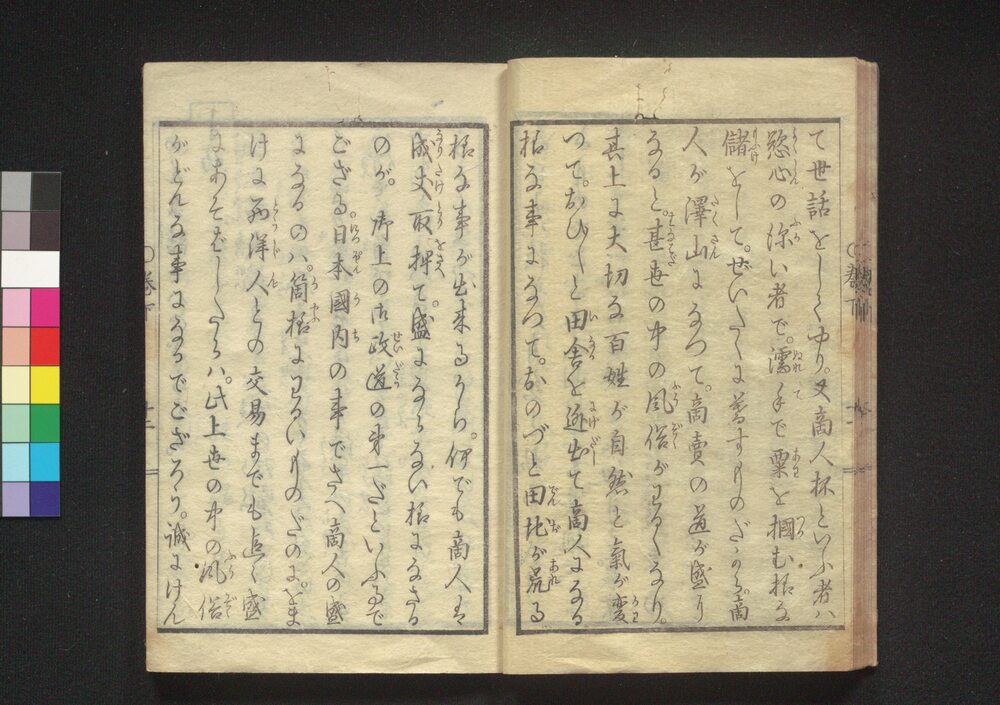 て世話をしてやり。又商人杯といふ者ハ
慾心の深い者で。濡手で粟を掴む様な
儲をして。ぜいたくに暮すものだから。商
人が澤山になつて。商賣の道が盛り
なると甚世の中の風俗がわるくなり。
其上に大切な百姓が自然と氣が変
つて。おひ〱と田舎を逃出て商人になる
様な事になつて。おのづと田地が荒る
様な事が出来るから。何でも商人は
成丈取押て。盛にならない様になさる
のが。御上の御政道の第一だといふ事で
ござる。日本國内の事でさへ商人の盛
になるのハ。箇様にわるいものだのに。をま
けに西洋人との交易までも追〻盛
になつて
ハ。此上世の中の風俗
がどんな事になるでござろう。誠にけん